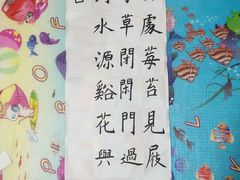 處莓苔見屐
草閉閑門過
水源谿花與